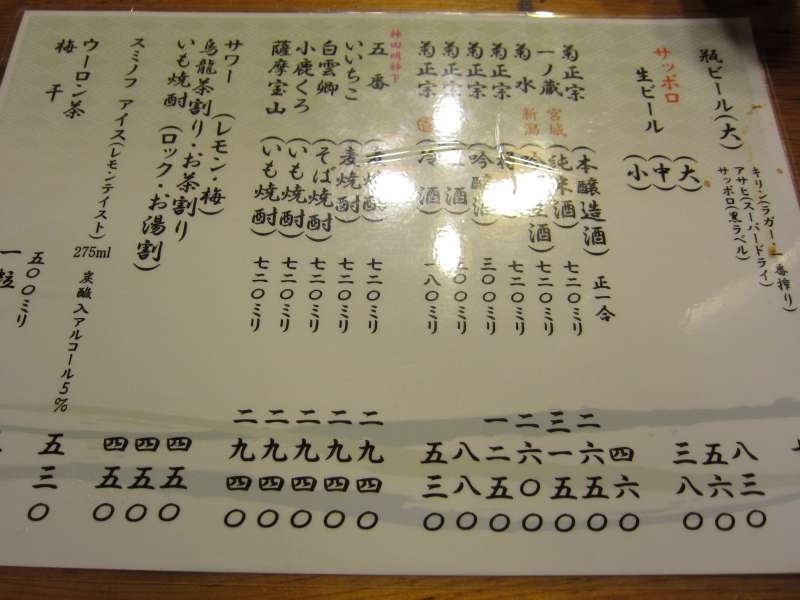 瓶ビール(大)
キリン(ラガー・一番搾り)
アサヒ(スーパードライ)
サッポロ(黒ラベル)
サッポロ
生ビール
(大) 八三〇
(中) 五六〇
(小) 三八〇
菊正宗 (本醸造酒) 正一合 四六〇
七二〇ミリ 二六五〇
一ノ蔵 宮城 (純米酒) 七二〇ミリ 三一五〇
菊水 新潟 酒) 七二〇ミリ 二六〇〇
菊正宗 七二〇ミリ
菊正宗 (吟醸酒) 三〇〇ミリ 一二五〇
菊正宗 八〇〇
菊正宗 (冷酒) 一八〇ミリ 五三〇
神田明神下
五番 七二〇ミリ 二九四〇
いいちこ (麦焼酎) 七二〇ミリ 二九四〇
白雲郷 (そば焼酎) 七二〇ミリ 二九四〇
小鹿くろ (いも焼酎) 七二〇ミリ 二九四〇
薩摩宝山 (いも焼酎) 七二〇ミリ 二九四〇
サワー (レモン・梅) 四五〇
烏龍茶割り・お茶割り 四五〇
いも焼酎 (ロック・お湯割) 四五〇
スミノフ アイス(レモンテイスト) 275ml 炭酸入アルコール5% 五三〇
ウーロン茶 五〇〇ミリ
梅干 一粒